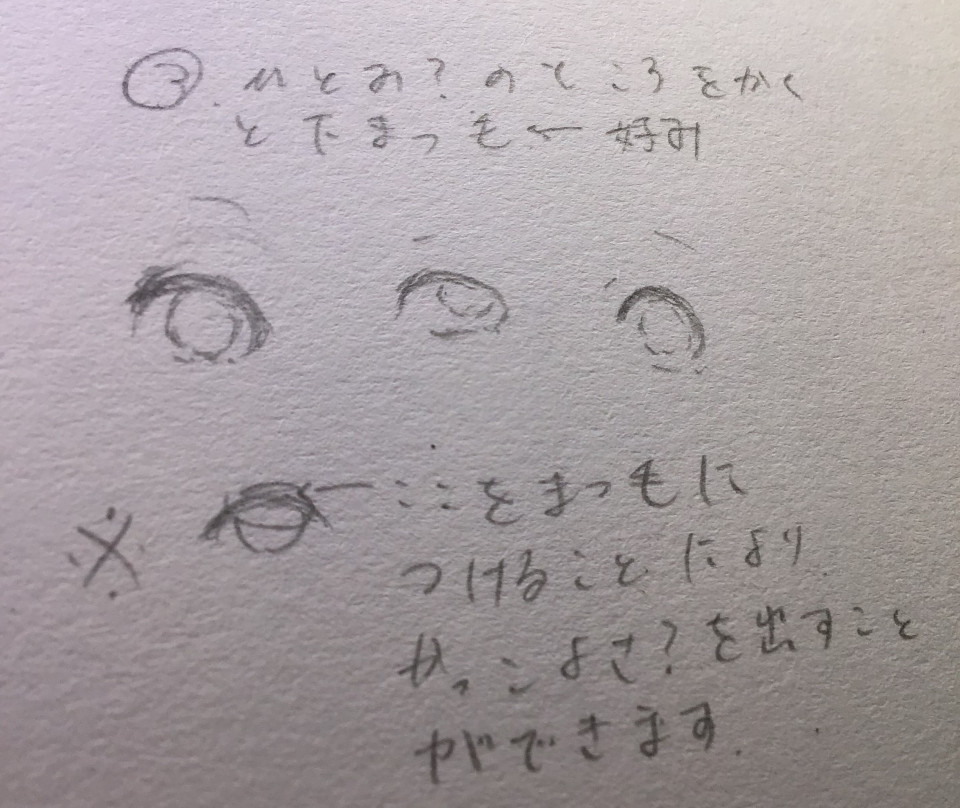 ③. ひとみ?のところをかく
と下まつも←好み
※ ←ここをまつもに
つけることにより
かっこよさ?を出すこと
ができます.